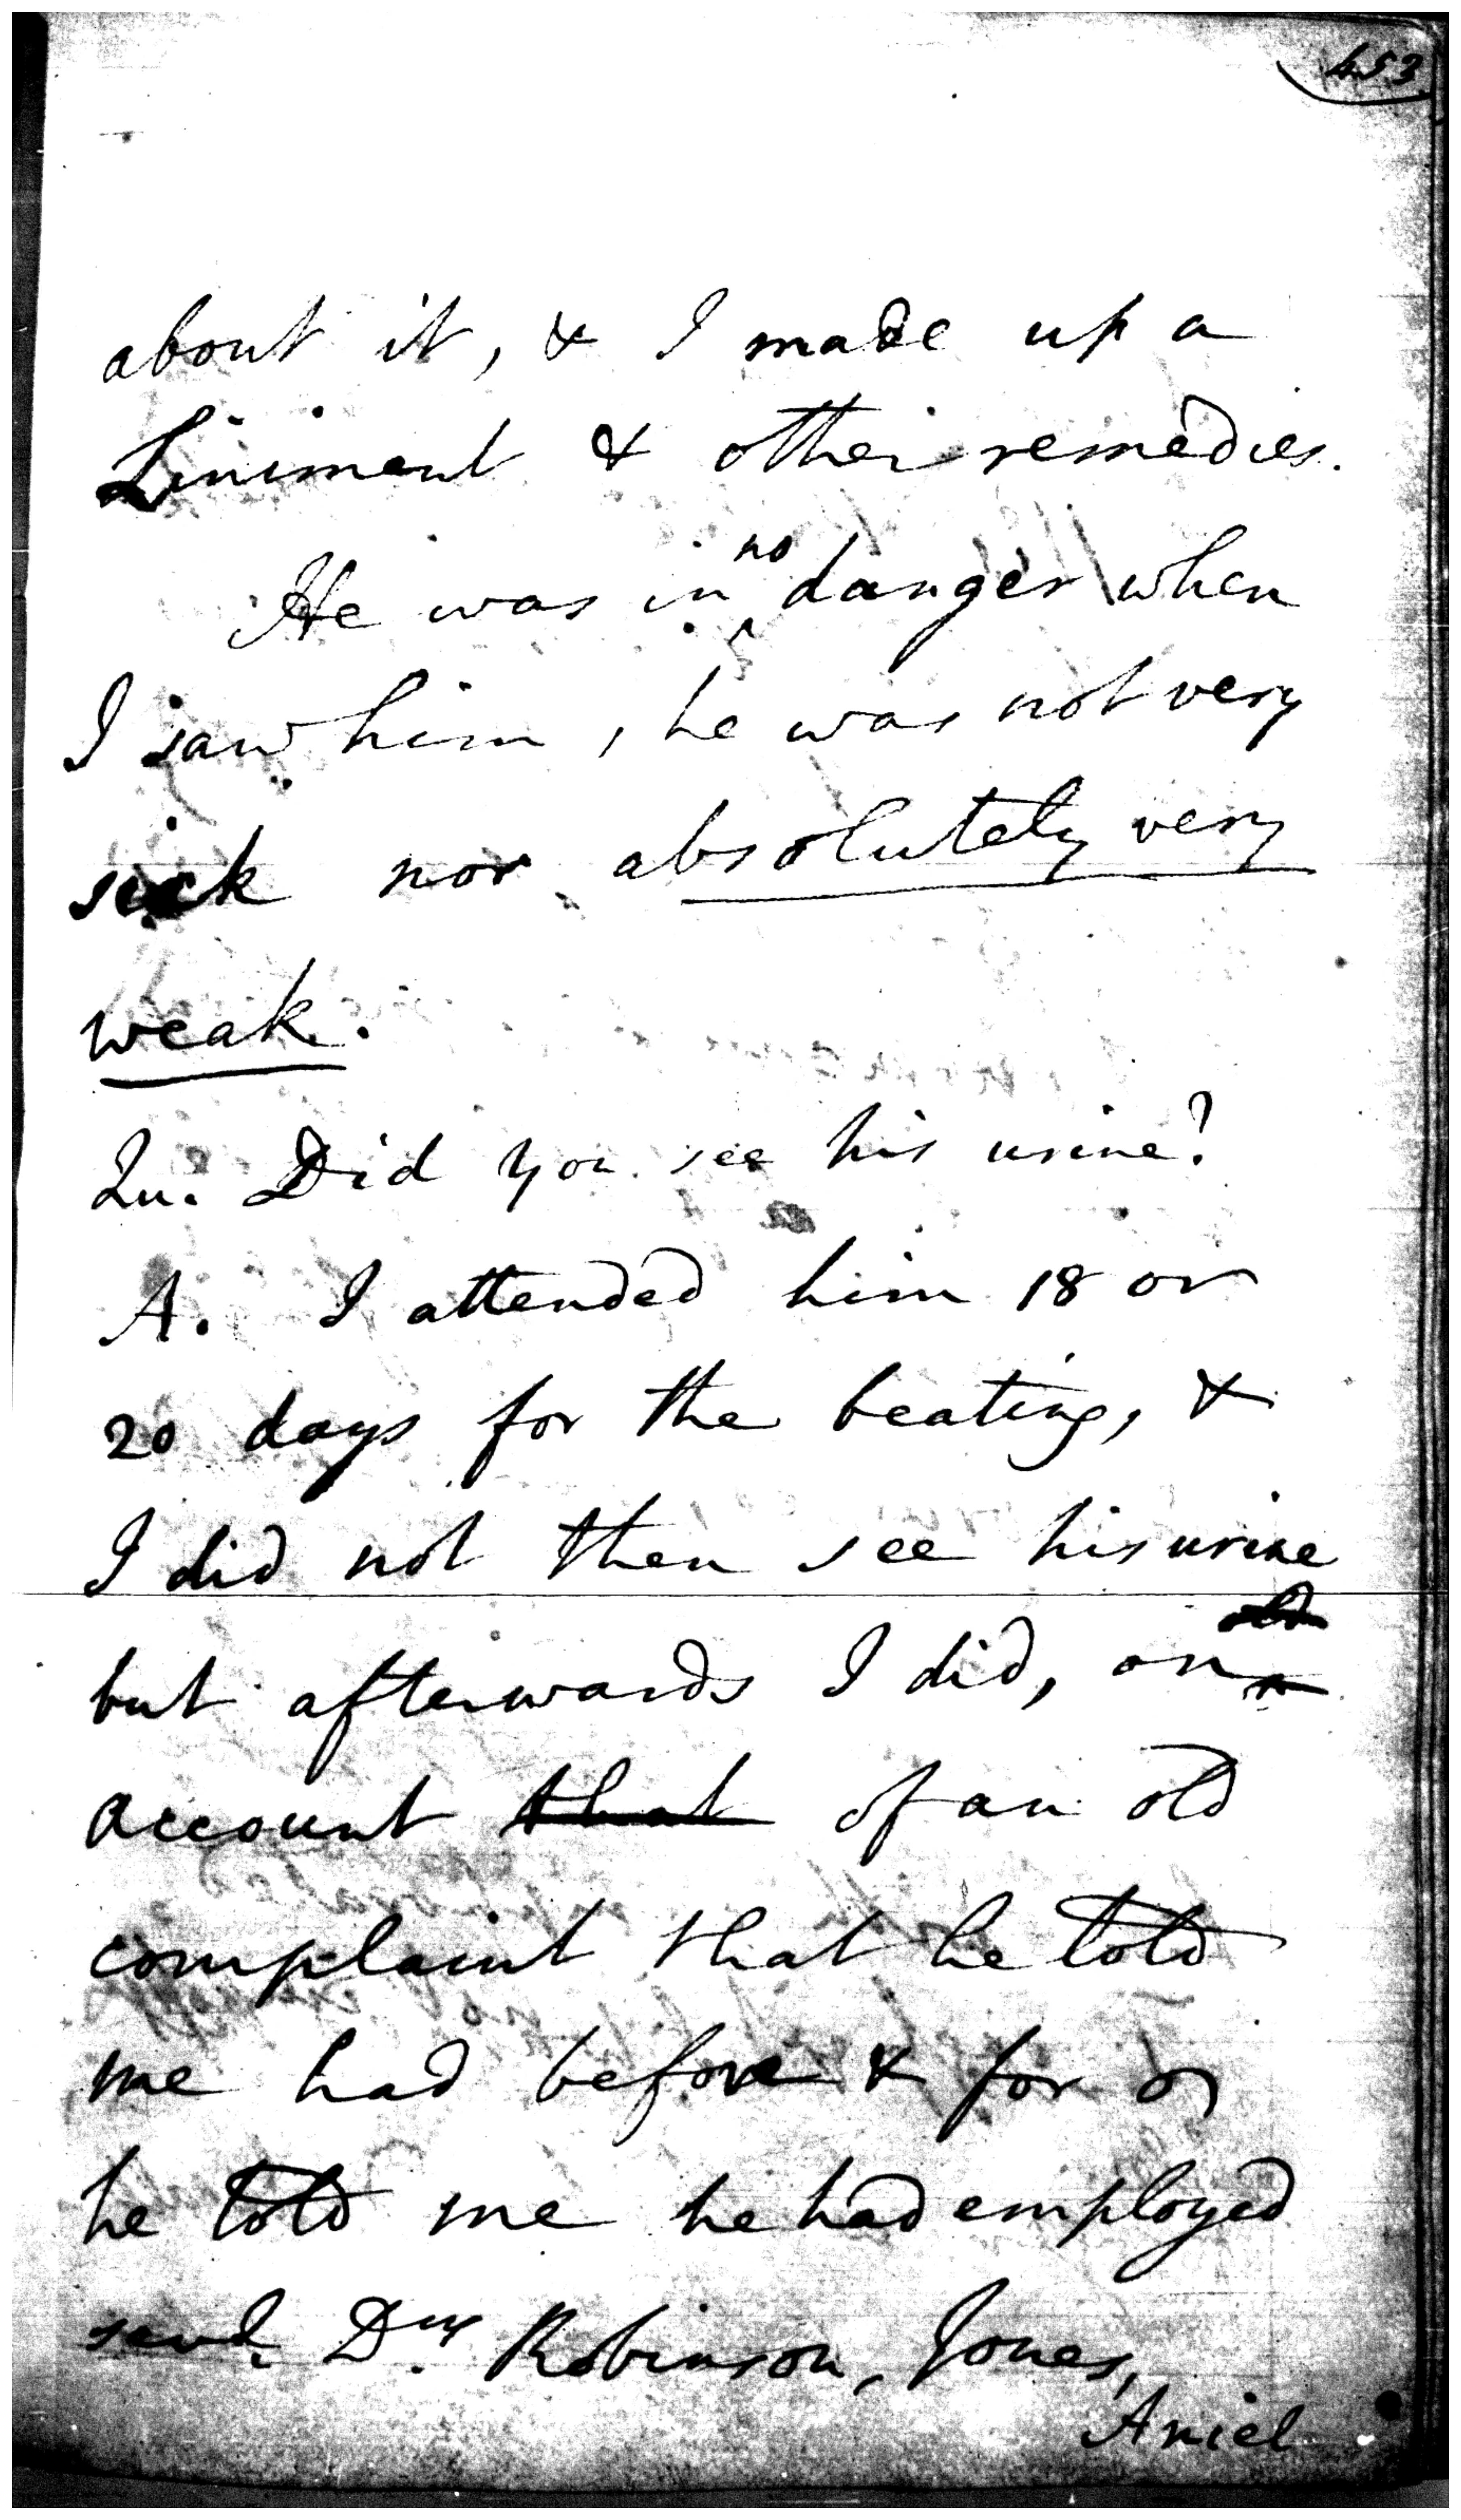 453
about it, & I made up a
Liniment & other remedies.
He was in no danger when
I saw him, he was not very
sick nor absolutely very
weak.
Qu. Did you see his urine?
A. I attended him 18 or
20 days for the beating, &
I did not then see his urine
but afterwards I did, on
account that of an old
complaint that he told
me had before & for
he told me he had employed
sevl. Drs. Robinson, Jones,
Aniel